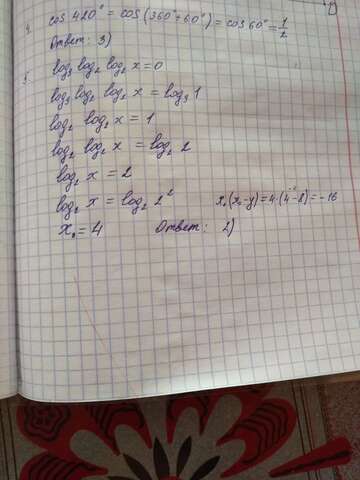 4. cos 420° = cos (360° + 60°) = cos 60° = 1/2
Ответ: 3)
5. log₃ log₂ log₂ x = 0
log₃ log₂ log₂ x = log₃ 1
log₂ log₂ x = 1
log₂ log₂ x = log₂ 2
log₂ x = 2
log₂ x = log₂ 2² x₀(x₀-y) = 4·(4-8) = -16
x₀ = 4 Ответ: 2)